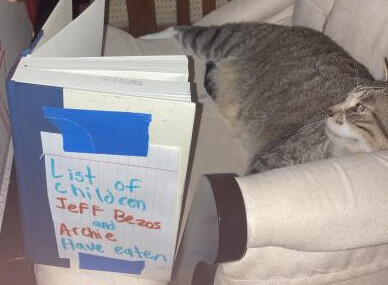 List of
children
Jeff Bezos
and
Archie
Have eaten